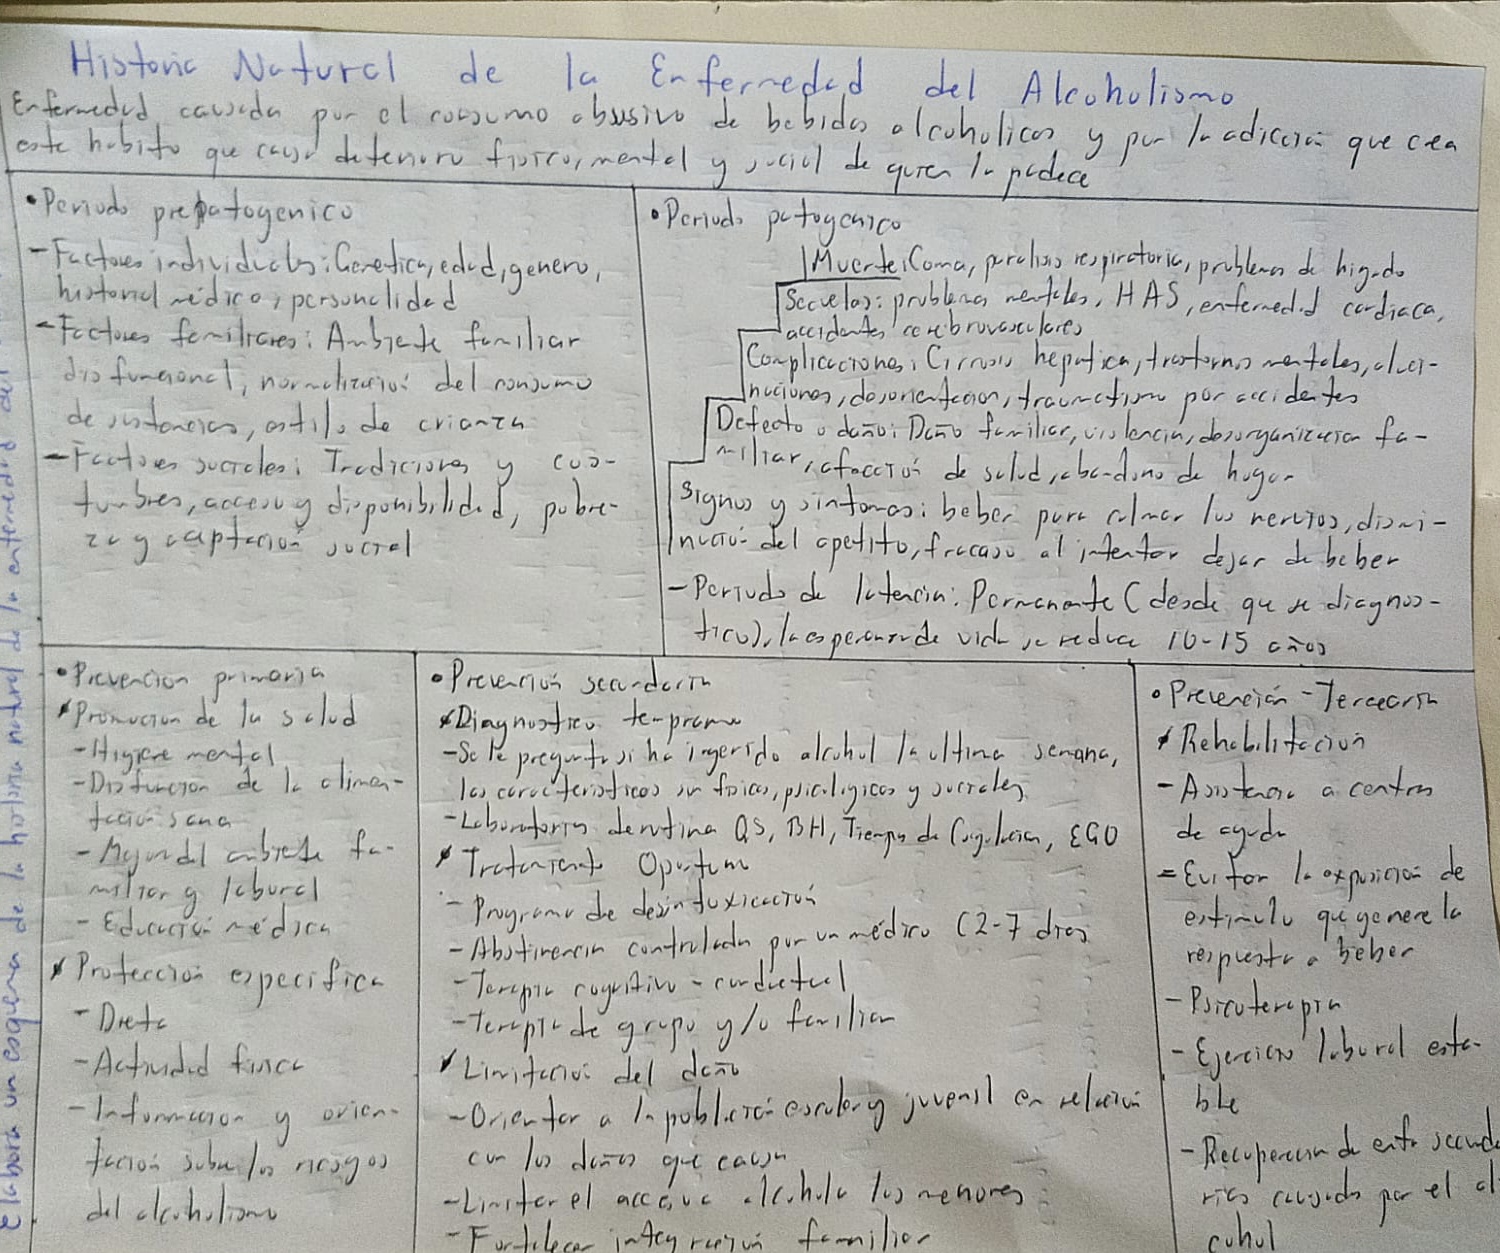 Historia Natural de la Enfermedad del Alcoholismo
Enfermedad causada por el consumo abusivo de bebidas alcoholicas y por la adiccion que crea
este habito que causa deterioro fisico, mental y social de quien la padece
• Periodo prepatogenico
- Factores individuales: Genetica, edad, genero,
historial médico, personalidad
- Factores familiares: Ambiente familiar
disfuncional, normalización del consumo
de sustancias, estilo de crianza
- Factores sociales: Tradiciones y cos-
tumbres, acceso y disponibilidad, pobre-
za y captacion social
• Periodo patogenico
Muerte: Coma, paralisis respiratoria, problemas de higado
Secuelas: problemas mentales, HAS, enfermedad cardiaca,
accidentes cerebrovasculares
Complicaciones: Cirrosis hepatica, trastornos mentales, aluci-
naciones, desorientacion, traumatismo por accidentes
Defecto o daño: Daño familiar, violencia, desorganizacion fa-
miliar, afección de salud, abandono de hogar
Signos y sintomas: beber para calmar los nervios, dismi-
nución del apetito, fracaso al intentar dejar de beber
- Periodo de latencia: Permanente (desde que se diagnos-
tico), la esperanza de vida se reduce 10-15 años
• Prevencion primaria
Promocion de la salud
- Higiene mental
- Disfuncion de la alimen-
tacion sana
- Mejora del ambiente fa-
miliar y laboral
- Educación médica
Protección especifica
- Dieta
- Actividad fisica
- Informacion y orien-
tación sobre los riesgos
del alcoholismo
• Prevención secundaria
Diagnostico temprano
- Se le pregunta si ha ingerido alcohol la ultima semana,
las caracteristicas son fisicas, psicologicas y sociales
- Laboratorios de rutina QS, BH, Tiempo de Coagulacion, EGO
Tratamiento Oportuno
- Programa de desintoxicación
- Abstinencia controlada por un médico (2-7 dias
- Terapia cognitivo - conductual
- Terapia de grupo y/o familiar
Limitación del daño
- Orientar a la población escolar y juvenil en relación
con los daños que causa
- Limitar el acceso a alcohol a los menores
- Fortalecer integracion familiar
• Prevención - Terceria
Rehabilitacion
- Asistencia a centros
de ayuda
- Evitar la exposición de
estimulo que genere la
respuesta a beber
- Psicoterapia
- Ejercicio laboral esta-
ble
- Recuperacion de enf. secunda
rias causada por el al
cohol
Elabora un esquema de la historia natural de la enfermedad del